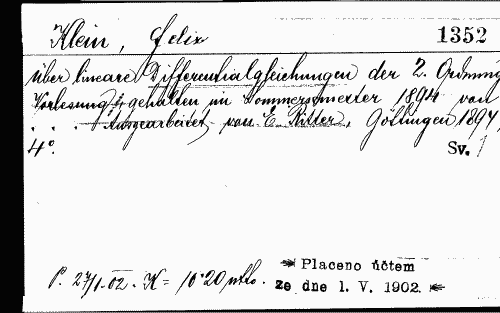 Klein, Felix 1352
über lineare Differentialgleichungen der 2. Ordnung
Vorlesung, gehalten im Sommersemester 1894 von
. . . Ausgearbeitet von E. Ritter, Göttingen 1894,
4°. Sv. 1
P. 27/1.02. K = 10·20 netto.
Placeno účtem
ze dne 1. V. 1902.